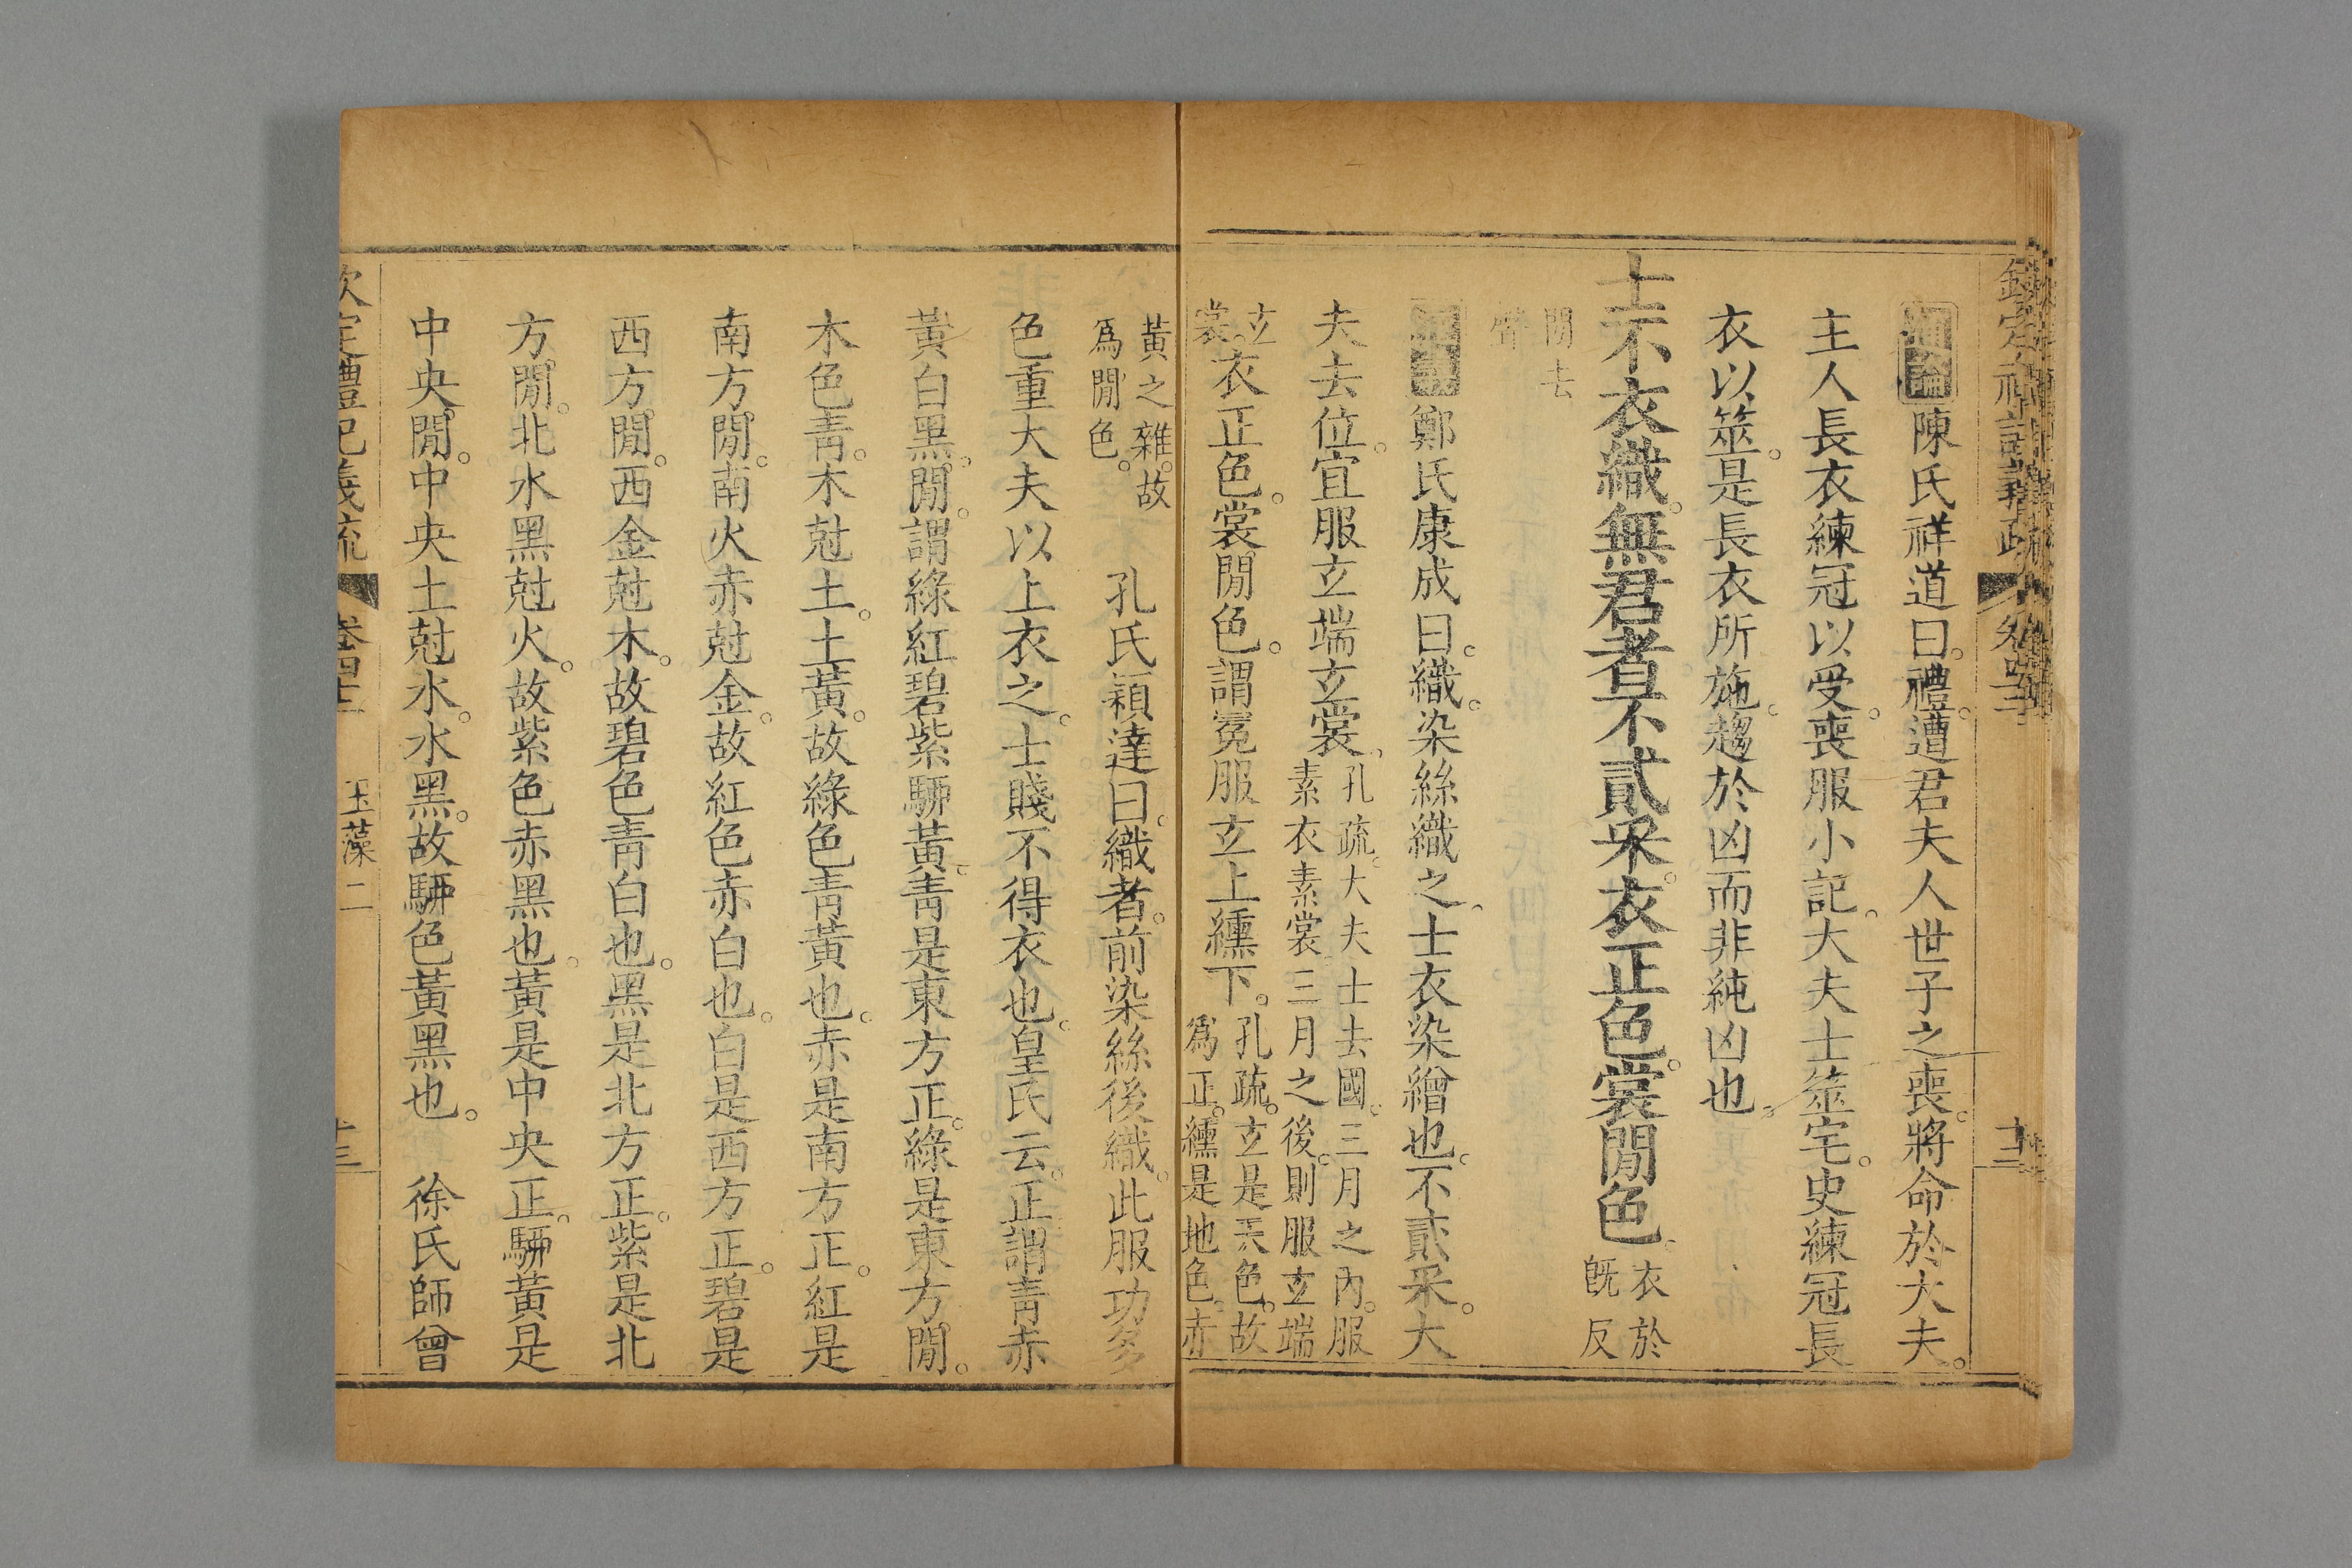 通論陳氏祥道曰禮遭君夫人世子之喪將命於大夫
主人長衣練冠以受喪服小記大夫士筮宅史練冠長
衣以筮是長衣所施趨於凶而非純凶也
士不衣織無君者不貳采衣正色裳閒色衣於
既反
閒去
聲
鄭氏康成曰織染絲織之士衣染繒也不貳采大
夫去位宜服玄端玄裳孔疏大夫士去國三月之內服
素衣素裳三月之後則服玄端
玄
裳衣正色裳閒色謂冕服玄上纁下孔疏玄是天色故
為正纁是地色赤
黃之雜故
為閒色 孔氏穎達曰織者前染絲後織此服功多
色重大夫以上衣之士賤不得衣也皇氏云正謂青赤
黃白黑閒謂綠紅碧紫騮黃青是東方正綠是東方閒
木色青木尅土土黃故綠色青黃也赤是南方正紅是
南方閒南火赤尅金故紅色赤白也白是西方正碧是
西方閒西金尅木故碧色青白也黑是北方正紫是北
方閒北水黑尅火故紫色赤黑也黃是中央正騮黃是
中央閒中央土尅水水黑故騮色黃黑也 徐氏師曾
欽定禮記義疏 卷四十二 玉藻二 十三